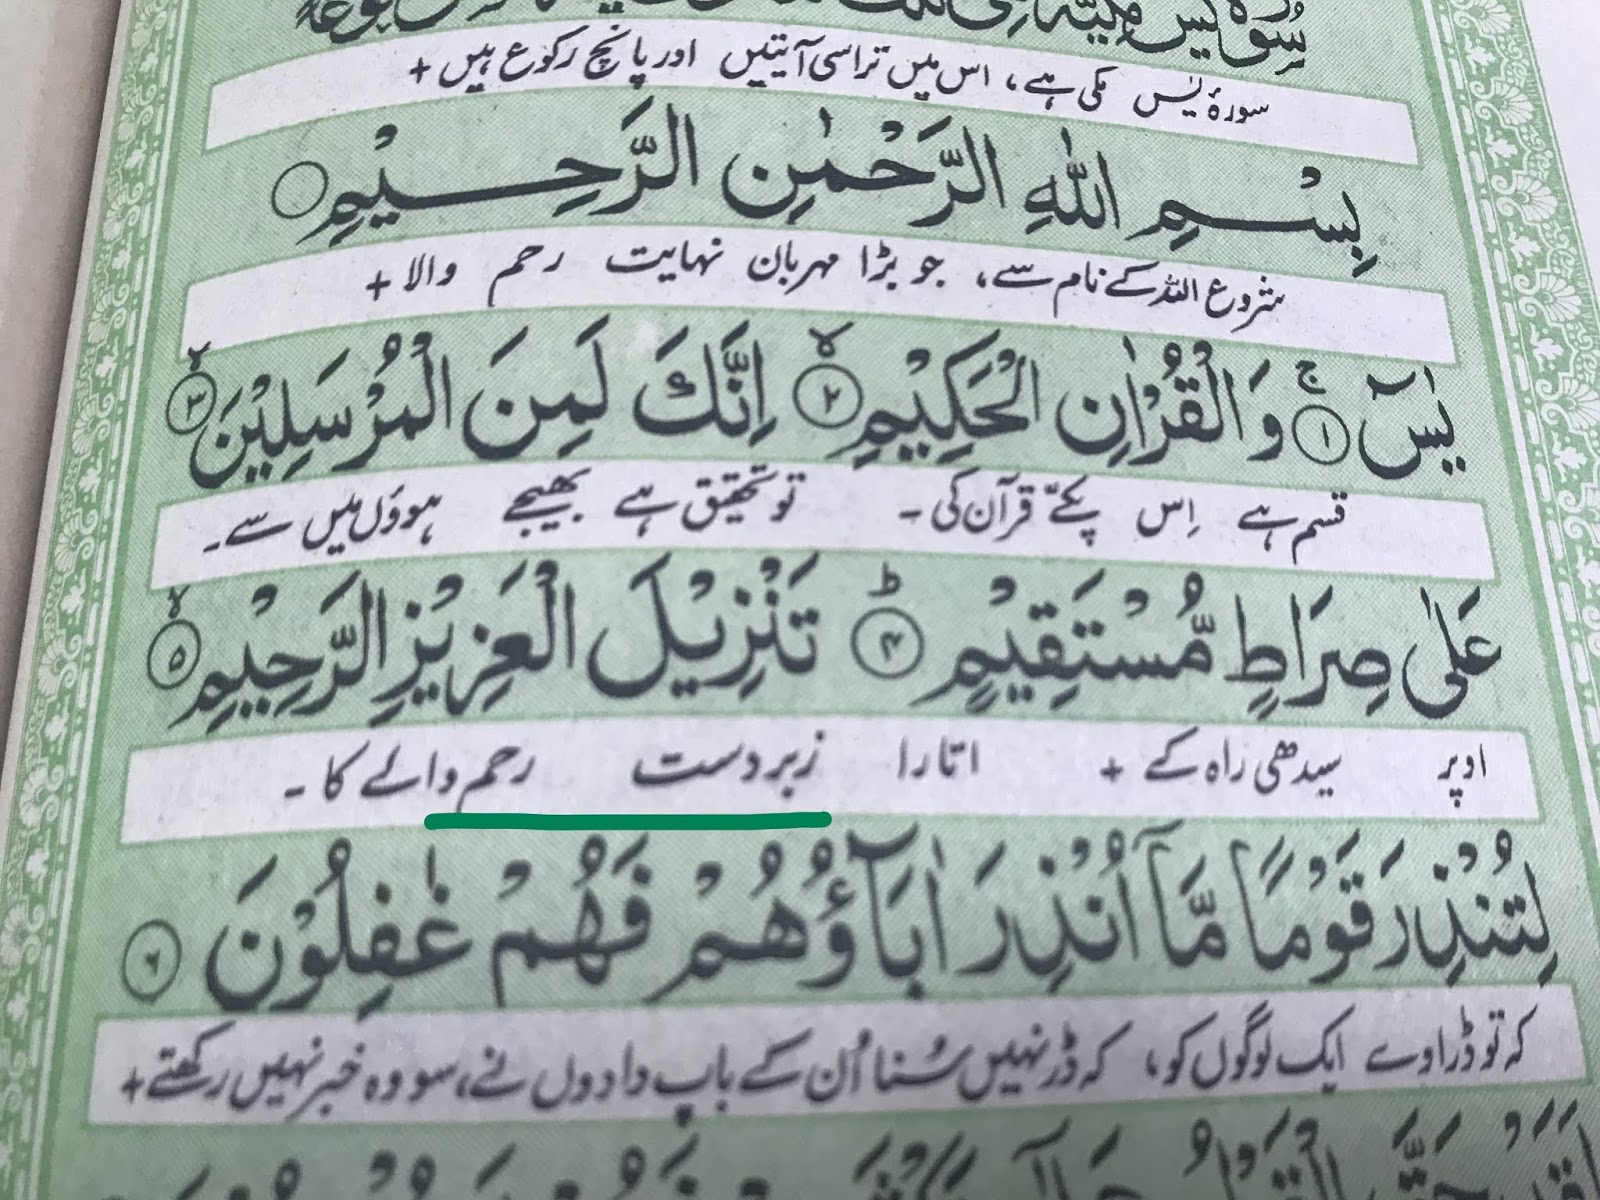 سورۂ یٰس مکی ہے، اس میں تراسی آیتیں اور پانچ رکوع ہیں +
بِسْمِ اللّٰهِ الرَّحْمٰنِ الرَّحِیْمِ ○
شروع اللہ کے نام سے، جو بڑا مہربان نہایت رحم والا +
یٰسٓ ۚ ﴿۱﴾ وَالْقُرْاٰنِ الْحَكِیْمِ ۙ ﴿۲﴾ اِنَّكَ لَمِنَ الْمُرْسَلِیْنَ ۙ ﴿۳﴾
قسم ہے اِس پکّے قرآن کی۔ تو تحقیق ہے بھیجے ہوؤں میں سے۔
عَلٰی صِرَاطٍ مُّسْتَقِیْمٍ ؕ ﴿۴﴾ تَنْزِیْلَ الْعَزِیْزِ الرَّحِیْمِ ۙ ﴿۵﴾
اوپر سیدھی راہ کے + اتارا زبردست رحم والے کا۔
لِتُنْذِرَ قَوْمًا مَّاۤ اُنْذِرَ اٰبَآؤُهُمْ فَهُمْ غٰفِلُوْنَ ﴿۶﴾
کہ تو ڈراوے ایک لوگوں کو، کہ ڈر نہیں سُنا اُن کے باپ دادوں نے، سو وہ خبر نہیں رکھتے +